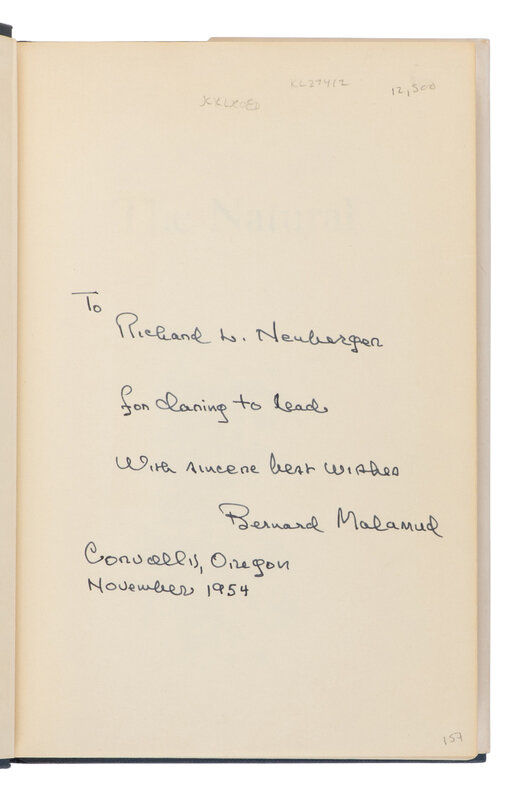 KL27412
12,500
The Natural
To
Richard L. Neuberger
for daring to lead
With sincere best wishes
Bernard Malamud
Corvallis, Oregon
November 1954
157